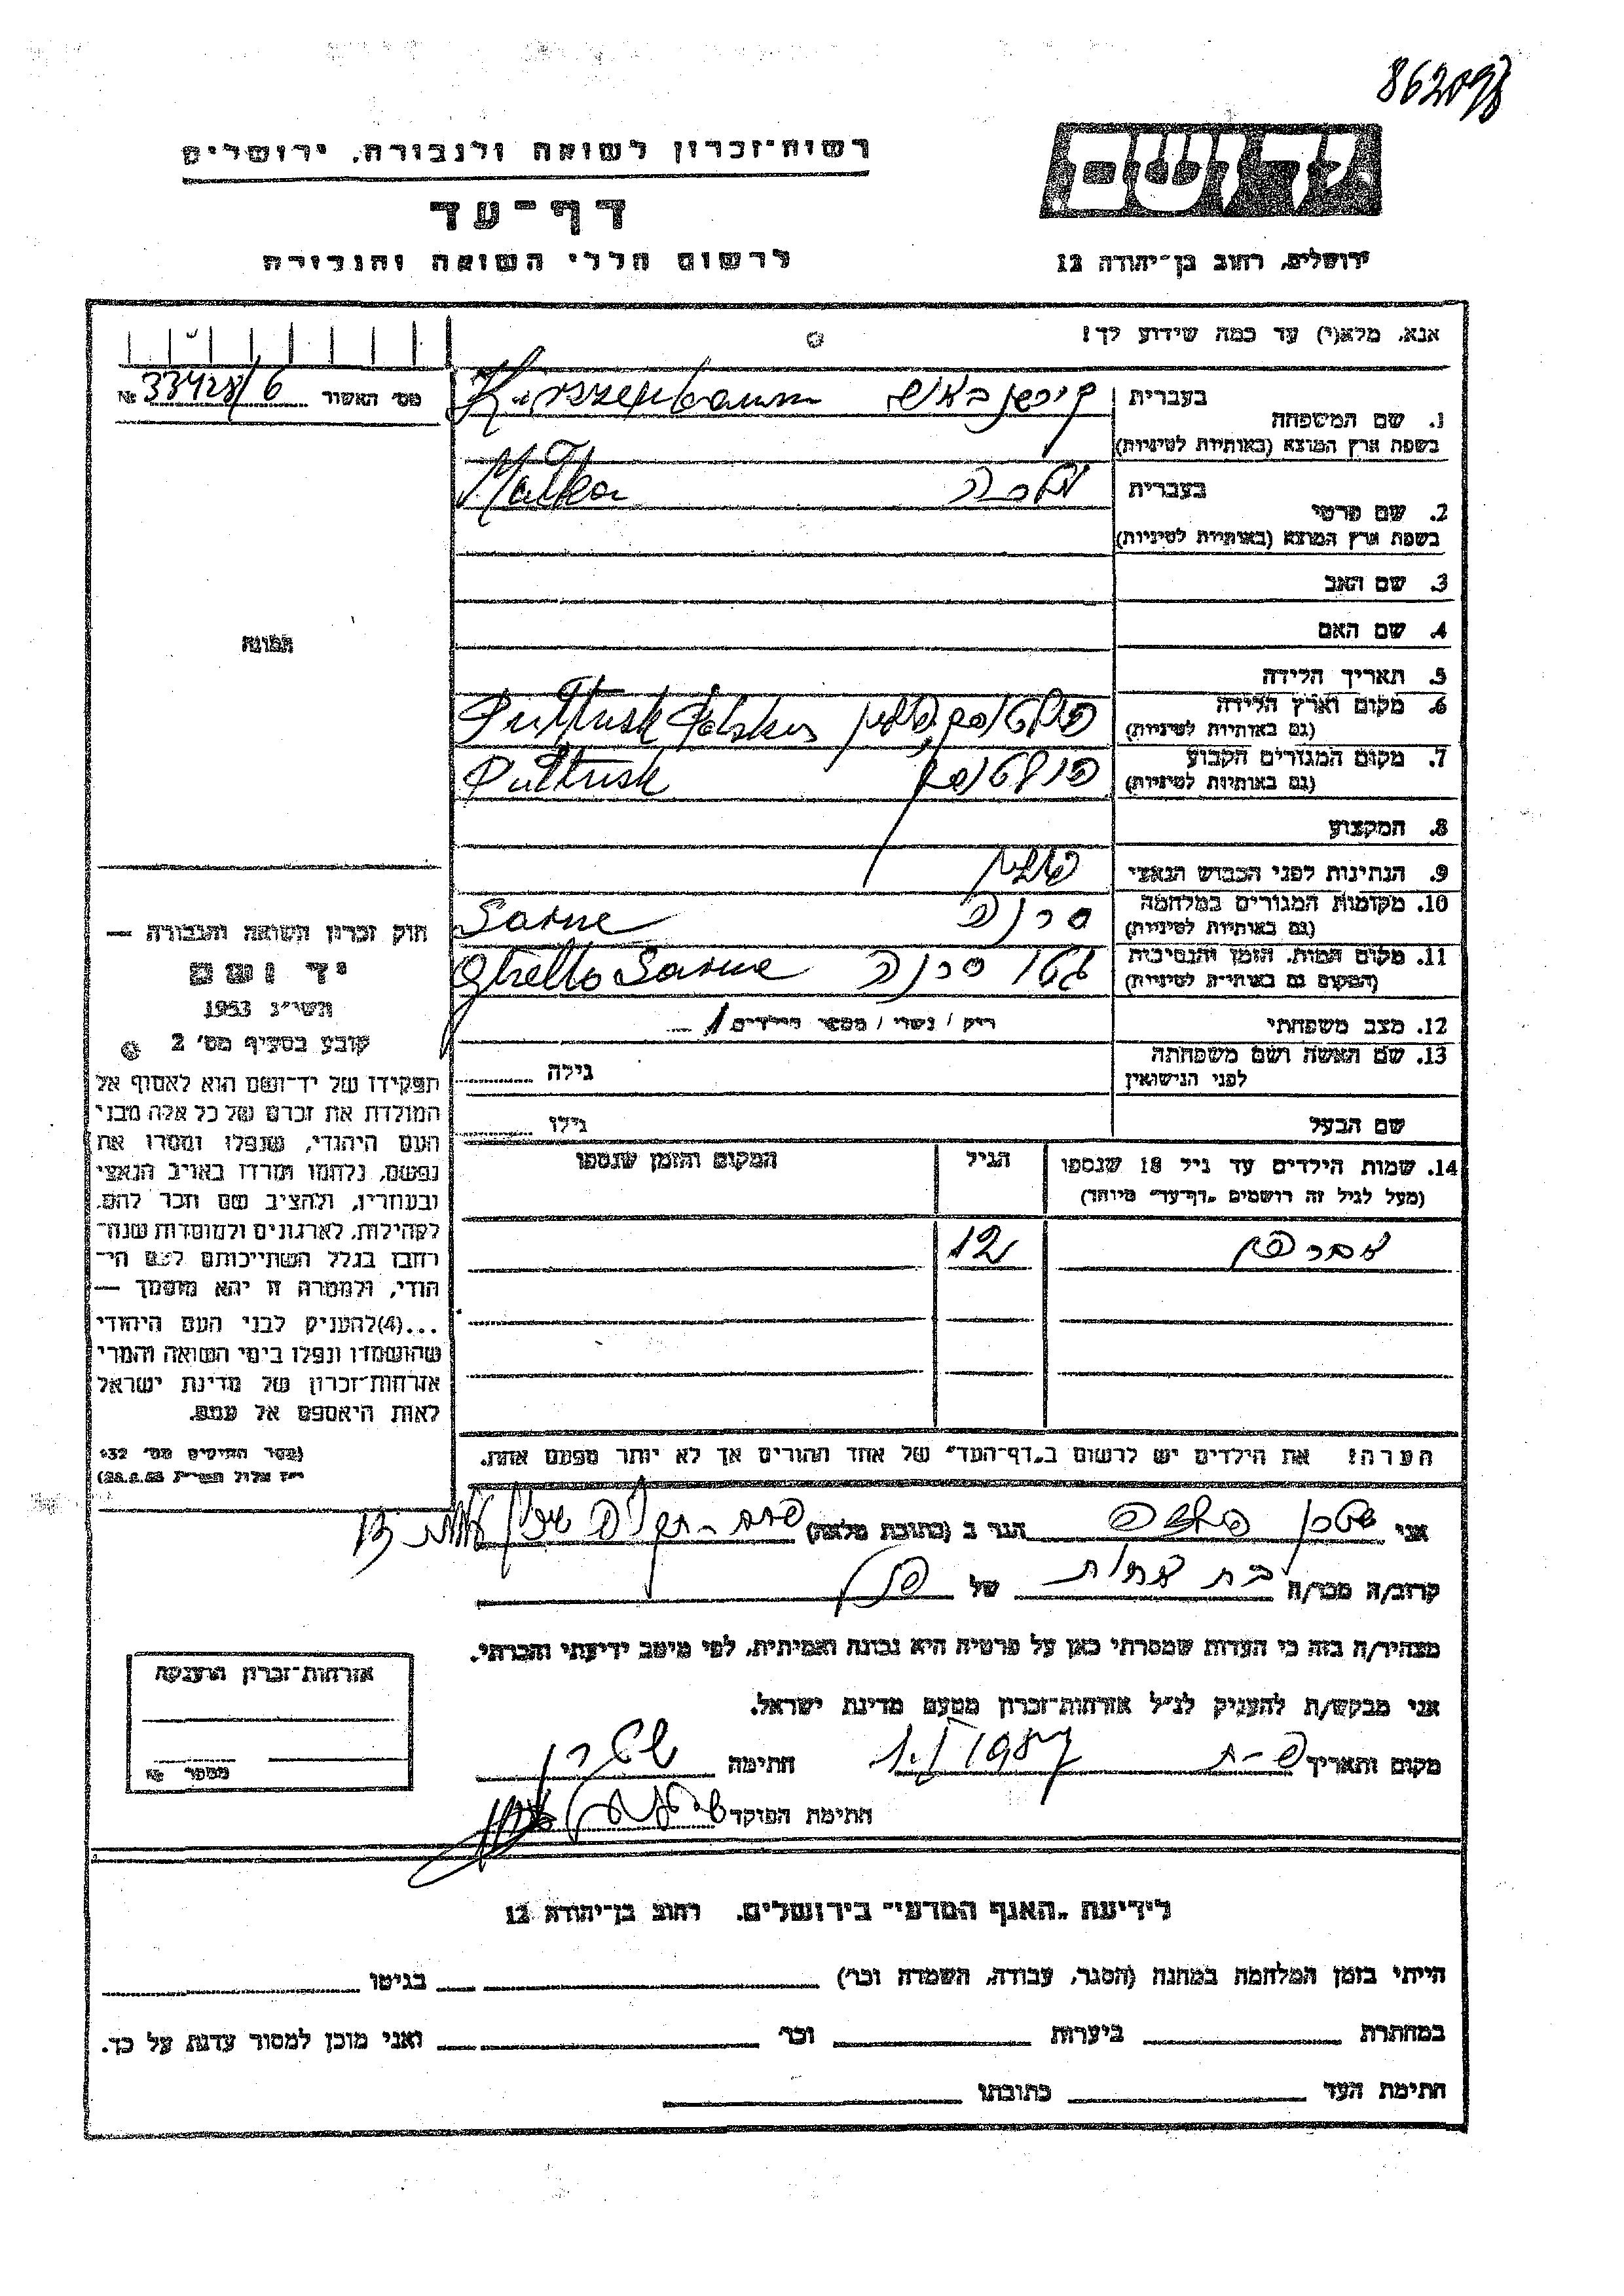 862098
רשות־זכרון לשואה ולגבורה, ירושלים
יד ושם
דף־עד
לרשום חללי השואה והגבורה
ירושלים, רחוב בן־יהודה 12
אנא, מלא(י) עד כמה שידוע לך!
מס׳ האשור 33428/6 №
1. שם המשפחה
בעברית קירשנבאום Kirszenbaum
בשפת ארץ המוצא (באותיות לטיניות)
2. שם פרטי
בעברית מלכה Malka
בשפת ארץ המוצא (באותיות לטיניות)
3. שם האב
4. שם האם
תמונה
5. תאריך הלידה
6. מקום וארץ הלידה פולטוסק, פולין Pułtusk Polska
(גם באותיות לטיניות)
7. מקום המגורים הקבוע פולטוסק Pułtusk
(גם באותיות לטיניות)
8. המקצוע
9. הנתינות לפני הכבוש הנאצי פולנית
10. מקומות המגורים במלחמה סרנה Sarne
(גם באותיות לטיניות)
11. מקום המות, הזמן והנסיבות גטו סרנה Ghetto Sarne
(המקום גם באותיות לטיניות)
12. מצב משפחתי רוק / נשוי / מספר הילדים 1
13. שם האשה ושם משפחתה
לפני הנישואין
גילה
שם הבעל גילו
14. שמות הילדים עד גיל 18 שנספו הגיל המקום והזמן שנספו
(מעל לגיל זה רושמים „דף־עד״ מיוחד)
12
הערה: את הילדים יש לרשום ב„דף־העד״ של אחד ההורים אך לא יותר מפעם אחת.
חוק זכרון השואה והגבורה —
יד ושם
תשי״ג 1953
קובע בסעיף מס׳ 2
תפקידו של יד־ושם הוא לאסוף אל
המולדת את זכרם של כל אלה מבני
העם היהודי, שנפלו ומסרו את
נפשם, נלחמו ומרדו באויב הנאצי
ובעוזריו, ולהציב שם וזכר להם,
לקהילות, לארגונים ולמוסדות שנח־
רבו בגלל השתייכותם לעם הי־
הודי, ולמטרה זו יהא מוסמך —
...(4)להעניק לבני העם היהודי
שהושמדו ונפלו בימי השואה והמרי
אזרחות־זכרון של מדינת ישראל
לאות היאספם אל עמם.
(ספר החוקים מס׳ 132
אני הגר ב (כתובת מלאה)
קרוב/ה מכר/ה בת אחות של
מצהיר/ה בזה כי העדות שמסרתי כאן על פרטיה היא נכונה ואמיתית, לפי מיטב ידיעתי והכרתי.
אני מבקש/ת להעניק לנ״ל אזרחות־זכרון מטעם מדינת ישראל.
מקום ותאריך פ-ת 1987 חתימה
חתימת הפוקד
אזרחות־זכרון הוענקה
מספר №
לידיעת „האגף המדעי״ בירושלים, רחוב בן־יהודה 12
הייתי בזמן המלחמה במחנה (הסגר, עבודה, השמדה וכו׳) בגיטו
במחתרת ביערות וכו׳ ואני מוכן למסור עדות על כך.
חתימת העד כתובתו